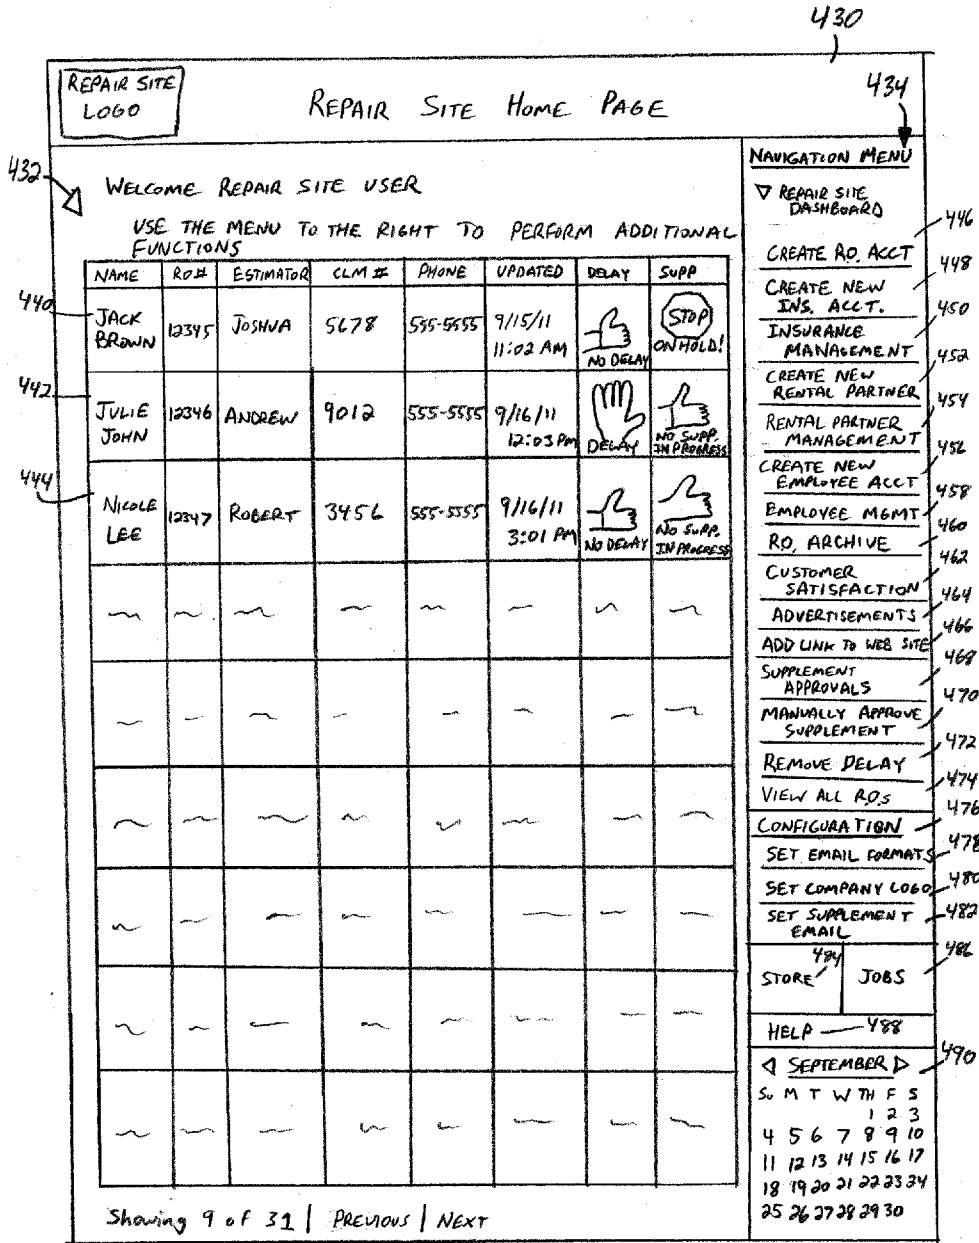 430
REPAIR SITE
LOGO
REPAIR SITE HOME PAGE
434
432
WELCOME REPAIR SITE USER
USE THE MENU TO THE RIGHT TO PERFORM ADDITIONAL
FUNCTIONS
NAME RO# ESTIMATOR CLM # PHONE UPDATED DELAY SUPP
440
JACK
BROWN
12345
JOSHUA
5678
555-5555
9/15/11
11:02 AM
NO DELAY
STOP
ON HOLD!
442
JULIE
JOHN
12346
ANDREW
9012
555-5555
9/16/11
12:03 PM
DELAY
NO SUPP.
IN PROGRESS
444
NICOLE
LEE
12347
ROBERT
3456
555-5555
9/16/11
3:01 PM
NO DELAY
NO SUPP.
IN PROGRESS
Showing 9 of 31 | PREVIOUS | NEXT
NAVIGATION MENU
REPAIR SITE
DASHBOARD
446
CREATE RO. ACCT
448
CREATE NEW
INS. ACCT.
450
INSURANCE
MANAGEMENT
452
CREATE NEW
RENTAL PARTNER
454
RENTAL PARTNER
MANAGEMENT
456
CREATE NEW
EMPLOYEE ACCT
458
EMPLOYEE MGMT
460
R.O. ARCHIVE
462
CUSTOMER
SATISFACTION
464
ADVERTISEMENTS
466
ADD LINK TO WEB SITE
468
SUPPLEMENT
APPROVALS
470
MANUALLY APPROVE
SUPPLEMENT
472
REMOVE DELAY
474
VIEW ALL R.O.s
476
CONFIGURATION
478
SET EMAIL FORMATS
480
SET COMPANY LOGO
482
SET SUPPLEMENT
EMAIL
484
STORE
486
JOBS
HELP 488
490
SEPTEMBER
Su M T W TH F S
1 2 3
4 5 6 7 8 9 10
11 12 13 14 15 16 17
18 19 20 21 22 23 24
25 26 27 28 29 30